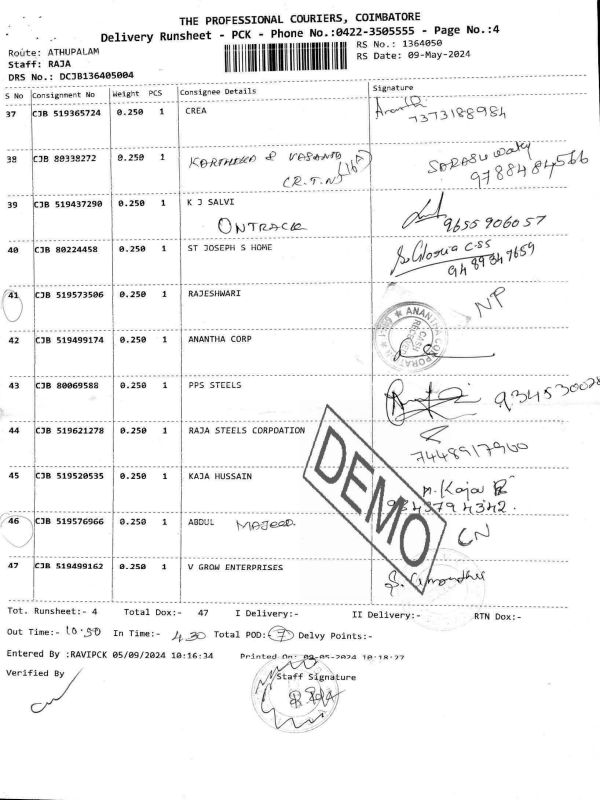 THE PROFESSIONAL COURIERS, COIMBATORE
Delivery Runsheet - PCK - Phone No.:0422-3505555 - Page No.:4
Route: ATHUPALAM
RS No.: 1364050
Staff: RAJA
RS Date: 09-May-2024
DRS No.: DCJB136405004
S No Consignment No Weight PCS Consignee Details Signature
37 CJB 519365724 0.250 1 CREA
7373188984
38 CJB 80338272 0.250 1 KARTHIKA & VASANTA (16A)
(R.T.N) SARASUwathy
9788484566
39 CJB 519437290 0.250 1 K J SALVI
ONTRACK 9655906057
40 CJB 80224458 0.250 1 ST JOSEPH S HOME Sr Gloria CSS
9489347659
41 CJB 519573506 0.250 1 RAJESHWARI NP
42 CJB 519499174 0.250 1 ANANTHA CORP
43 CJB 80069588 0.250 1 PPS STEELS
44 CJB 519621278 0.250 1 RAJA STEELS CORPOATION
7448917900
45 CJB 519520535 0.250 1 KAJA HUSSAIN M. Kaja
9843794342.
46 CJB 519576966 0.250 1 ABDUL MAJEED CN
47 CJB 519499162 0.250 1 V GROW ENTERPRISES
DEMO
Tot. Runsheet:- 4 Total Dox:- 47 I Delivery:- II Delivery:- RTN Dox:-
Out Time:- 10.50 In Time:- 4.30 Total POD: 7 Delvy Points:-
Entered By :RAVIPCK 05/09/2024 10:16:34 Printed On: 09-05-2024 10:18:27
Verified By
Staff Signature